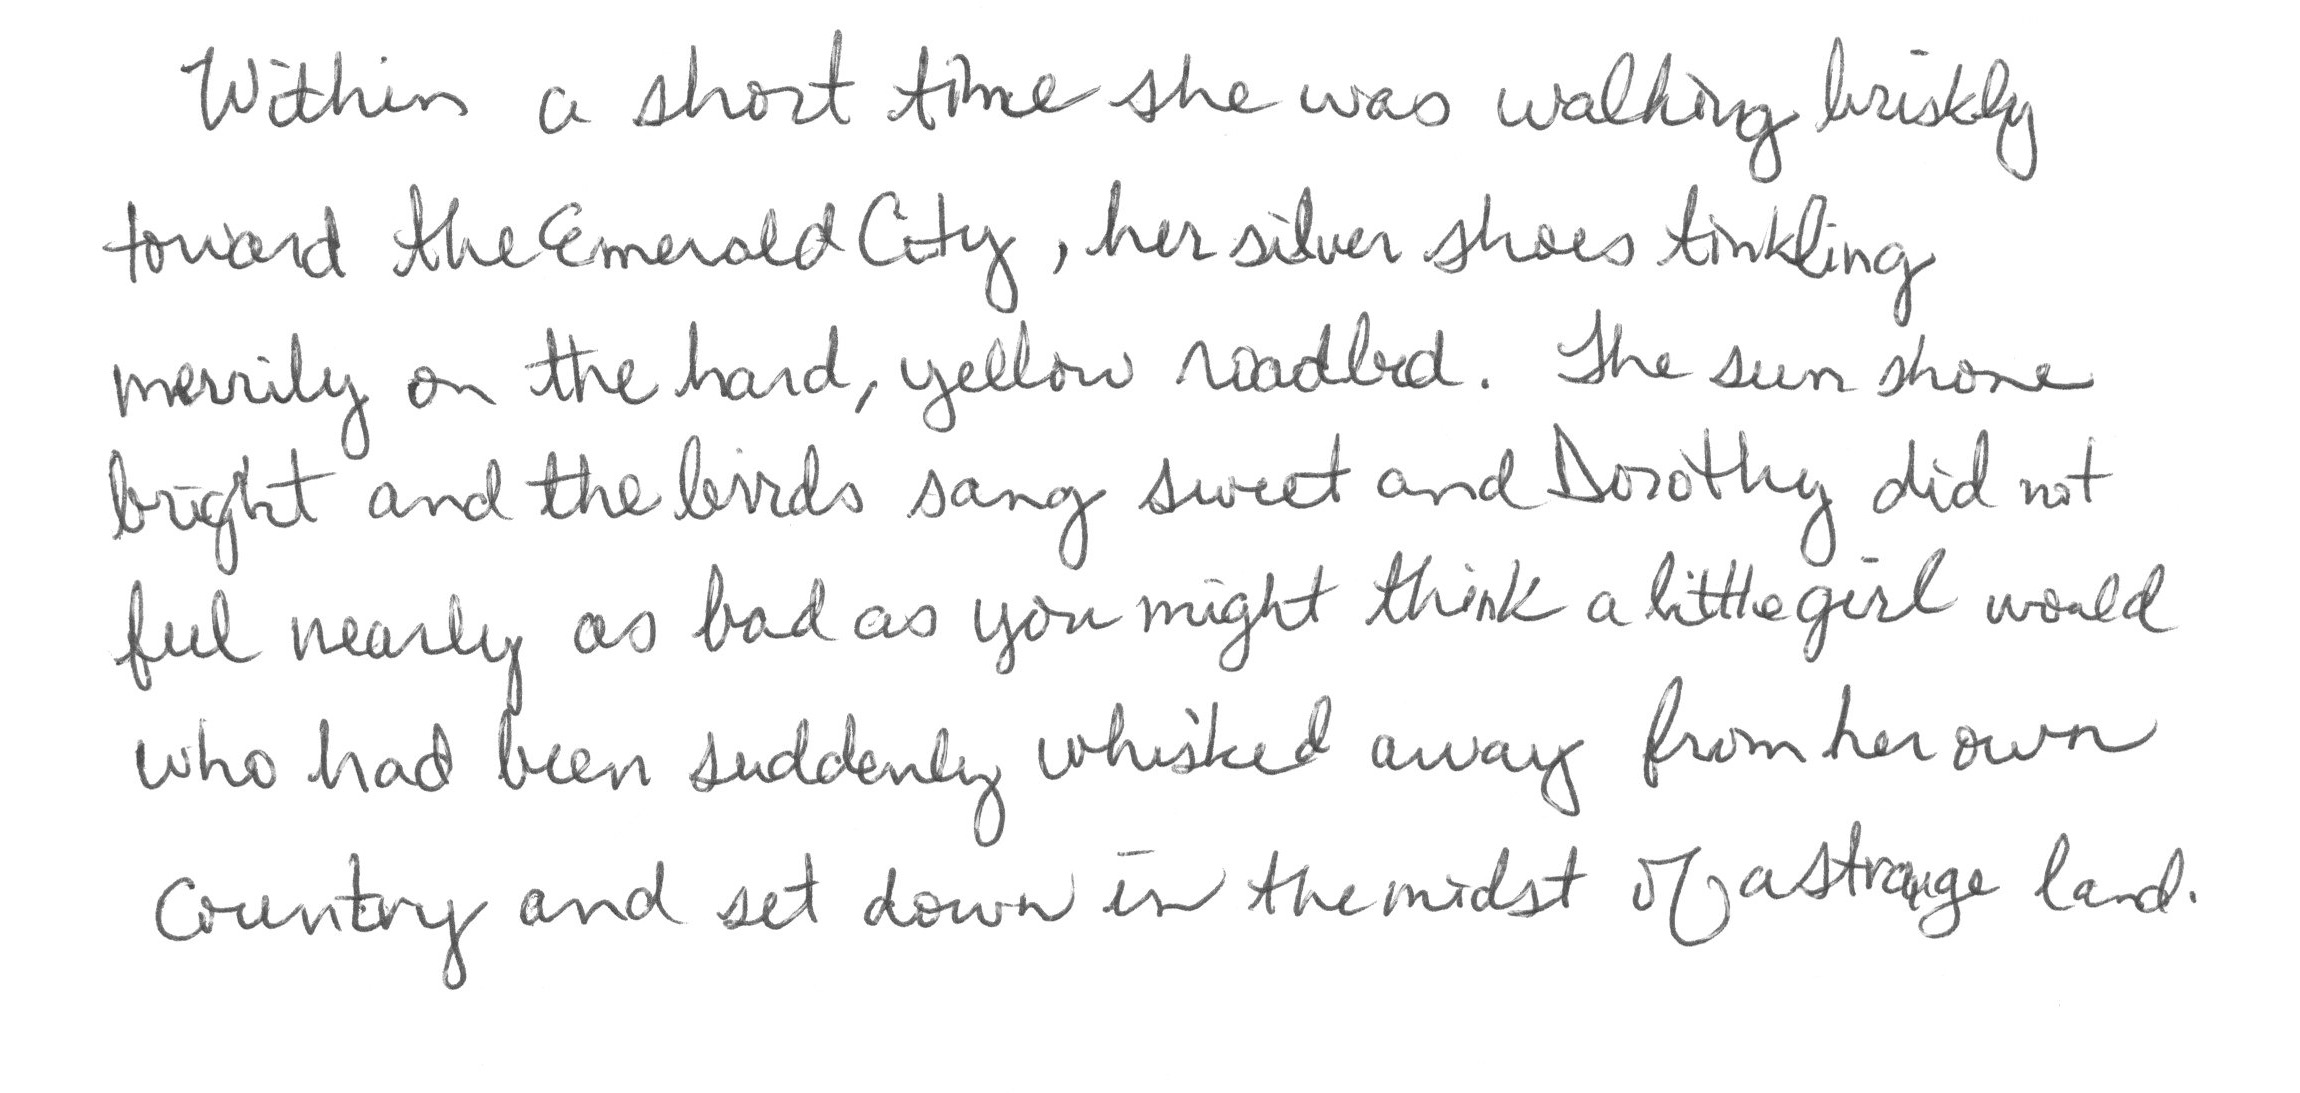 Within a short time she was walking briskly
toward the Emerald City, her silver shoes tinkling
merrily on the hard, yellow roadbed. The sun shone
bright and the birds sang sweet and Dorothy did not
feel nearly as bad as you might think a little girl would
who had been suddenly whisked away from her own
country and set down in the midst of a strange land.